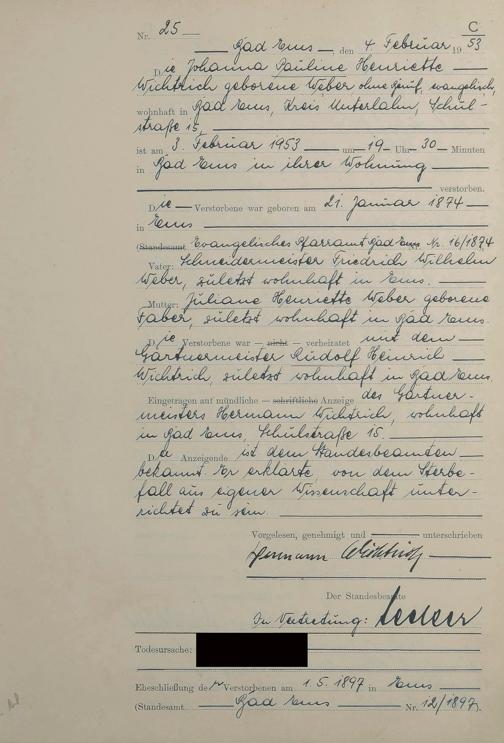 C
Nr. 25
53
Bad Ems, den 4. Februar 19
Die Johanna Pauline Henriette
Wichtrich geborene Weber ohne Beruf, evangelisch,
wohnhaft in Bad Ems, Kreis Unterlahn, Schul-
straße 15,
ist am 3. Februar 1953 um 19 Uhr 30 Minuten
in Bad Ems in ihrer Wohnung
verstorben.
Die Verstorbene war geboren am 21. Januar 1874
in Ems
(Standesamt Evangelisches Pfarramt Bad Ems Nr. 16/1874
Vater: Schneidermeister Friedrich Wilhelm
Weber, zuletzt wohnhaft in Ems.
Mutter: Juliane Henriette Weber geborene
Faber, zuletzt wohnhaft in Bad Ems.
Die Verstorbene war – nicht – verheiratet mit dem
Gärtnermeister Rudolf Heinrich
Wichtrich, zuletzt wohnhaft in Bad Ems.
Eingetragen auf mündliche – schriftliche Anzeige des Gärtner-
meisters Hermann Wichtrich, wohnhaft
in Bad Ems, Schulstraße 15.
Der Anzeigende ist dem Standesbeamten
bekannt. Er erklärte, von dem Sterbe-
fall aus eigener Wissenschaft unter-
richtet zu sein.
Vorgelesen, genehmigt und unterschrieben
Hermann Wichtrich
Der Standesbeamte
In Vertretung:
Todesursache:
Eheschließung der Verstorbenen am 1.5.1897 in Ems
(Standesamt Bad Ems Nr. 12/1897).